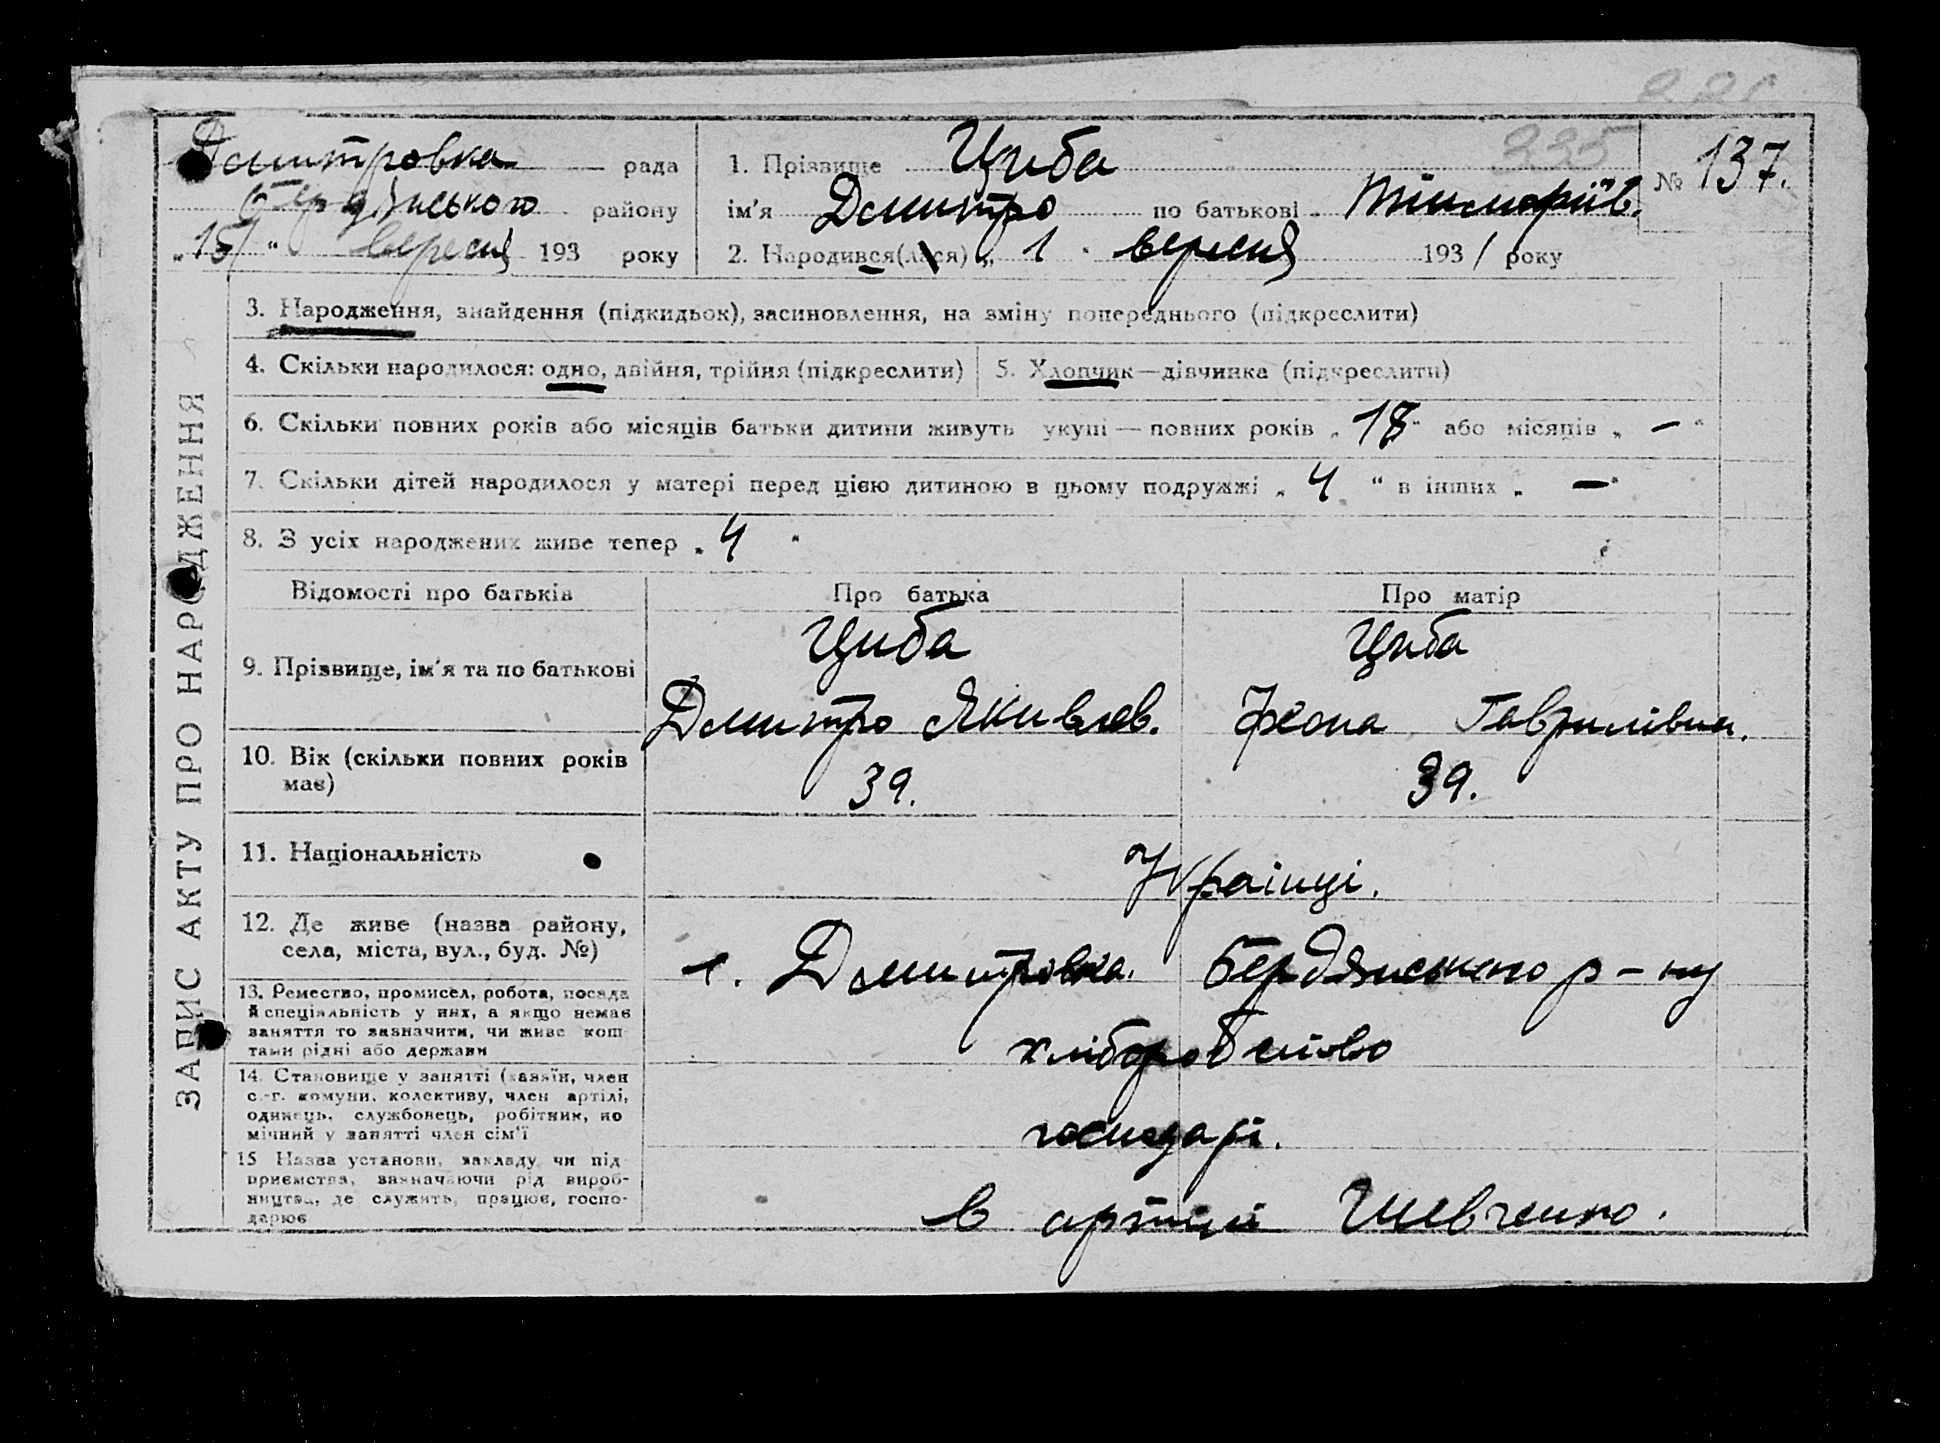 Дмитровка рада
Бердянського району
„15" вересня 193 року
1. Прізвище Циба
ім'я Дмитро по батькові
2. Народився(лася) „1" вересня 1931 року
№ 137.
335
ЗАПИС АКТУ ПРО НАРОДЖЕННЯ
3. Народження, знайдення (підкидьок), засиновлення, на зміну попереднього (підкреслити)
4. Скільки народилося: одно, двійня, трійня (підкреслити)
5. Хлопчик—дівчинка (підкреслити)
6. Скільки повних років або місяців батьки дитини живуть укупі — повних років „18" або місяців „ — "
7. Скільки дітей народилося у матері перед цією дитиною в цьому подружжі „4" в інших „ — "
8. З усіх народжених живе тепер „4"
Відомості про батьків
Про батька
Про матір
9. Прізвище, ім'я та по батькові
Циба
Дмитро Якивлев.
Циба
Гаврилівна.
10. Вік (скільки повних років
має)
39.
39.
11. Національність
Українці.
12. Де живе (назва району,
села, міста, вул., буд. №)
с. Дмитровка. Бердянського р-ну
13. Ремество, промисел, робота, посада
й спеціяльність у них, а якщо немає
заняття то зазначити, чи живе кош
тами рідні або держави
хліборобство
14. Становище у занятті (хазяїн, член
с.-г. комуни, колективу, член артілі,
одинець, службовець, робітник, по
мічний у занятті член сім'ї
господарі.
15 Назва установи, закладу чи під
приємства, зазначаючи рід вироб-
ництва, де служить, працює, госпо-
дарює
в артілі Шевченко.